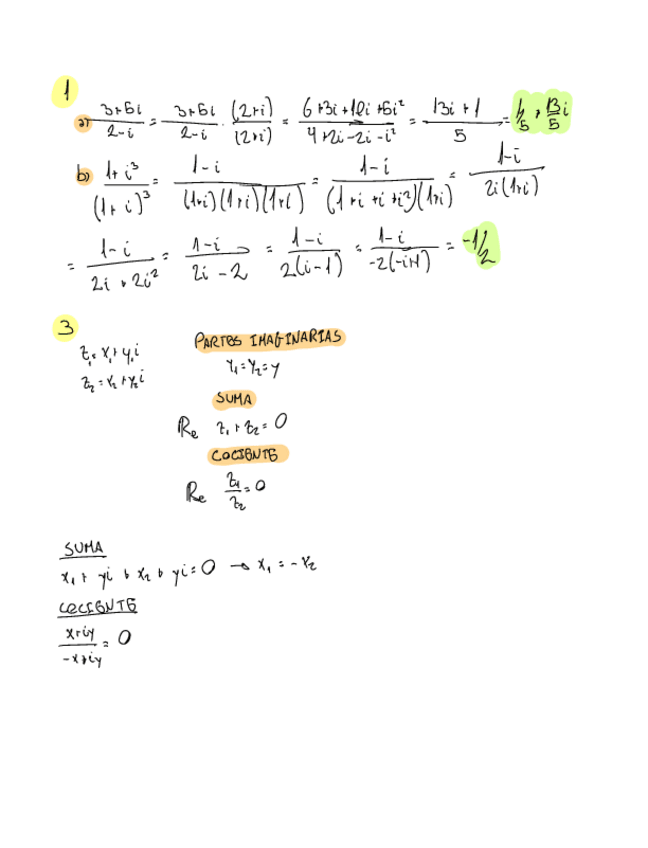 1
a) (3+5i)/(2-i) = (3+5i)/(2-i) · (2+i)/(2+i) = (6+3i+10i+5i²)/(4+2i-2i-i²) = (13i+1)/5 = 1/5 + 13/5 i
b) (1+i³)/(1+i)³ = (1-i)/((1+i)(1+i)(1+i)) = (1-i)/((1+i+i+i²)(1+i)) = (1-i)/(2i(1+i))
= (1-i)/(2i+2i²) = (1-i)/(2i-2) = (1-i)/(2(i-1)) = (1-i)/(-2(-i+1)) = -1/2
3
z₁=x₁+y₁i
z₂=x₂+y₂i
PARTES IMAGINARIAS
y₁=y₂=y
SUMA
Re z₁+z₂=0
COCIENTE
Re z₁/z₂=0
SUMA
x₁+yi+x₂+yi=0 → x₁=-x₂
COCIENTE
(x+iy)/(-x+iy) = 0